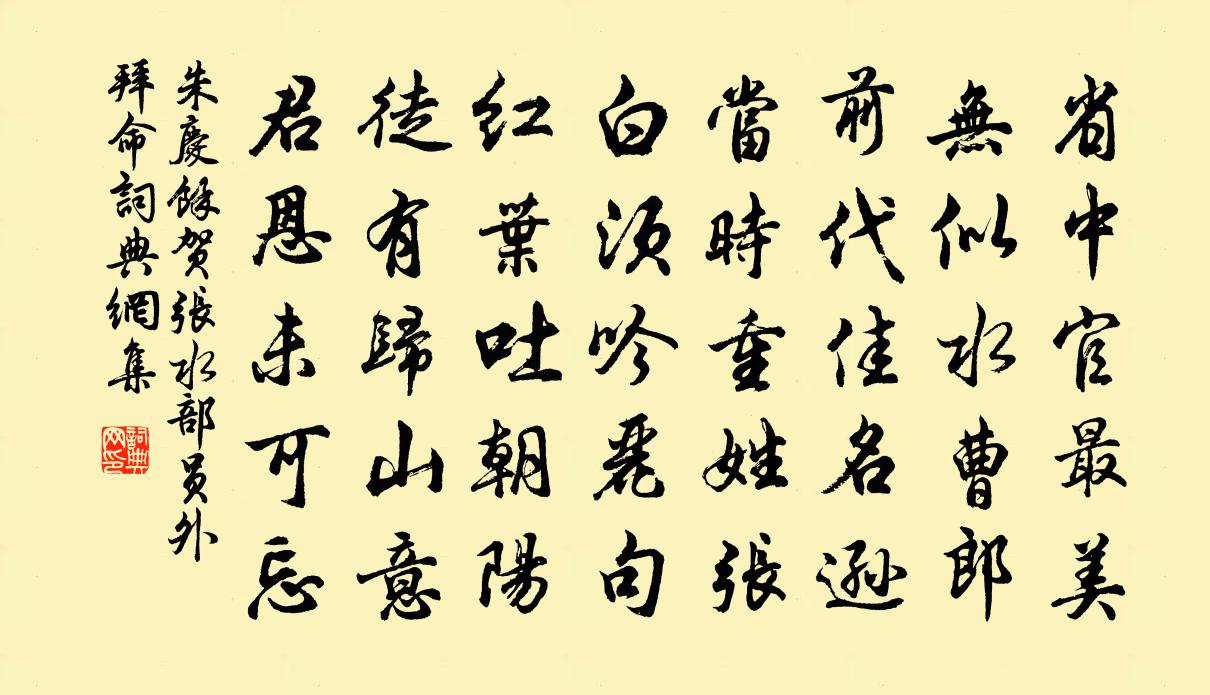 省中官最美
無似水曹郎
前代佳名遜
當時重姓張
白須吟麗句
红葉吐朝陽
徒有歸山意
君恩未可忘
朱慶餘贺張水部員外
拜命詞典網集
詞典網印